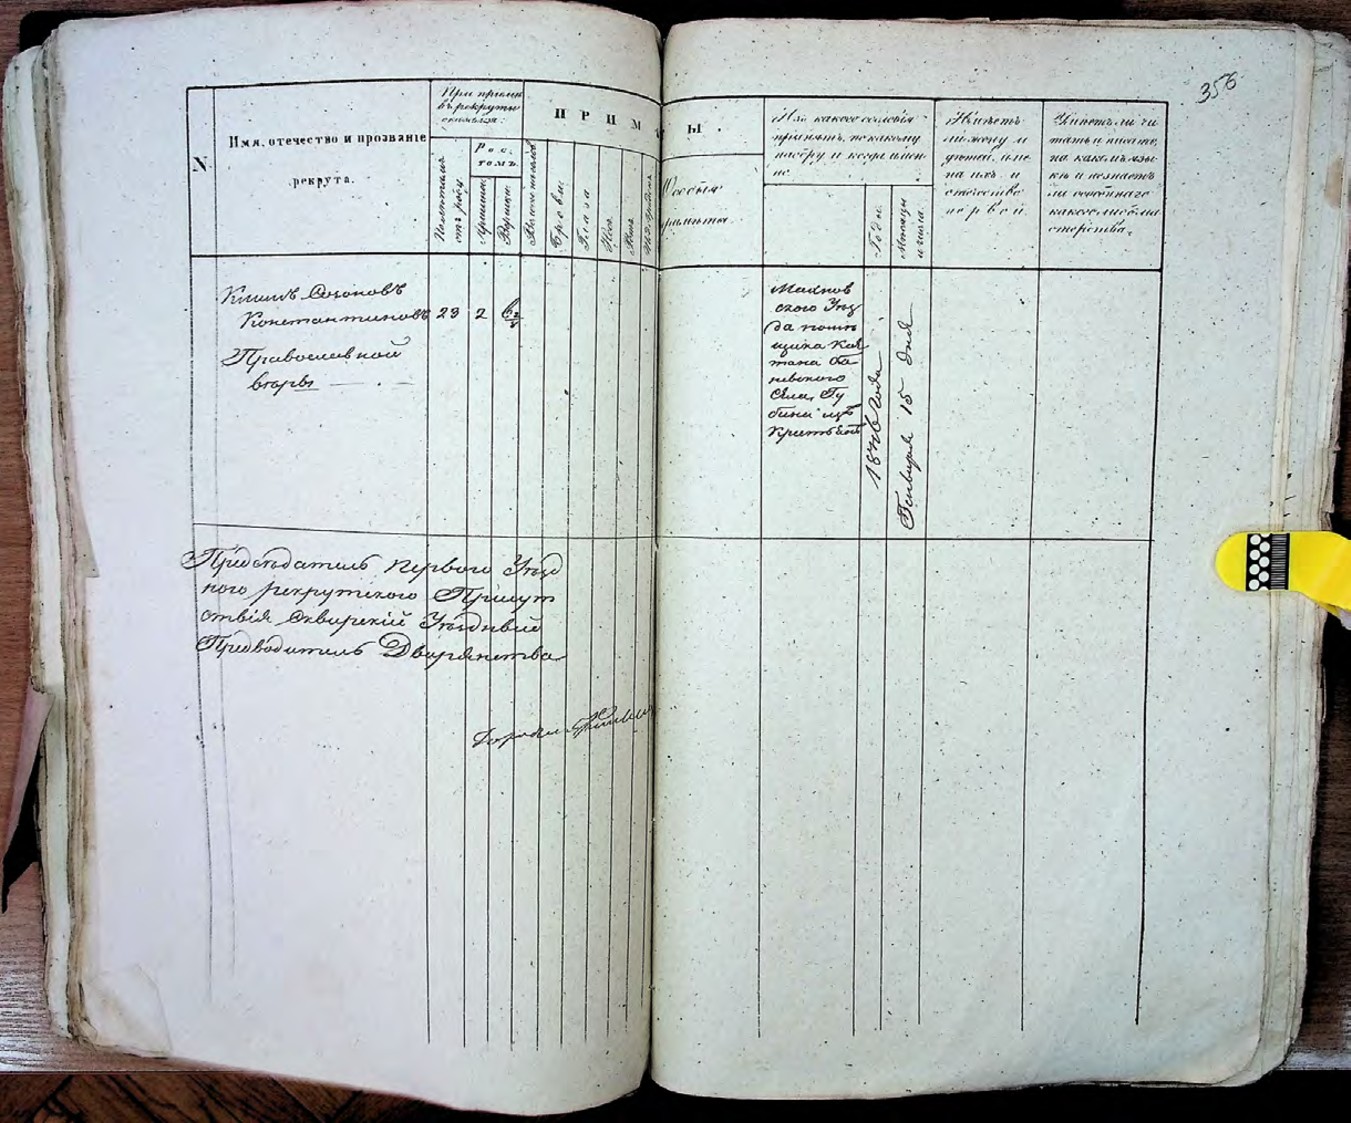 356
N.
Имя, отечество и прозваніе
рекрута.
При пріемѣ
въ рекруты
оказался:
Ростомъ.
Аршины.
Вершки.
ПРИМѢТЫ.
Брови.
Глаза.
Носъ.
Особыя
примѣты.
Изъ какого сословія
принятъ, по какому
набору и когда имен
но.
Годы.
Мѣсяцы
и числа.
Имѣетъ
ли жену и
дѣтей, име
на ихъ и
отечество
первой.
Умѣетъ ли чи
тать и писать,
на какомъ язы
кѣ и не знаетъ
ли особеннаго
какого либо ма
стерства.
Климъ Созоновъ
Константиновъ 23 2
Православной
вѣры
Махнов
ского Уѣз
да помѣ
щика
села Гу
бина изъ
крестьянъ
1846 года
Генваря 15 дня
Предсѣдатель перваго Уѣзд
наго рекрутскаго Присут
ствія Сквирскій Уѣздный
Предводитель Дворянства